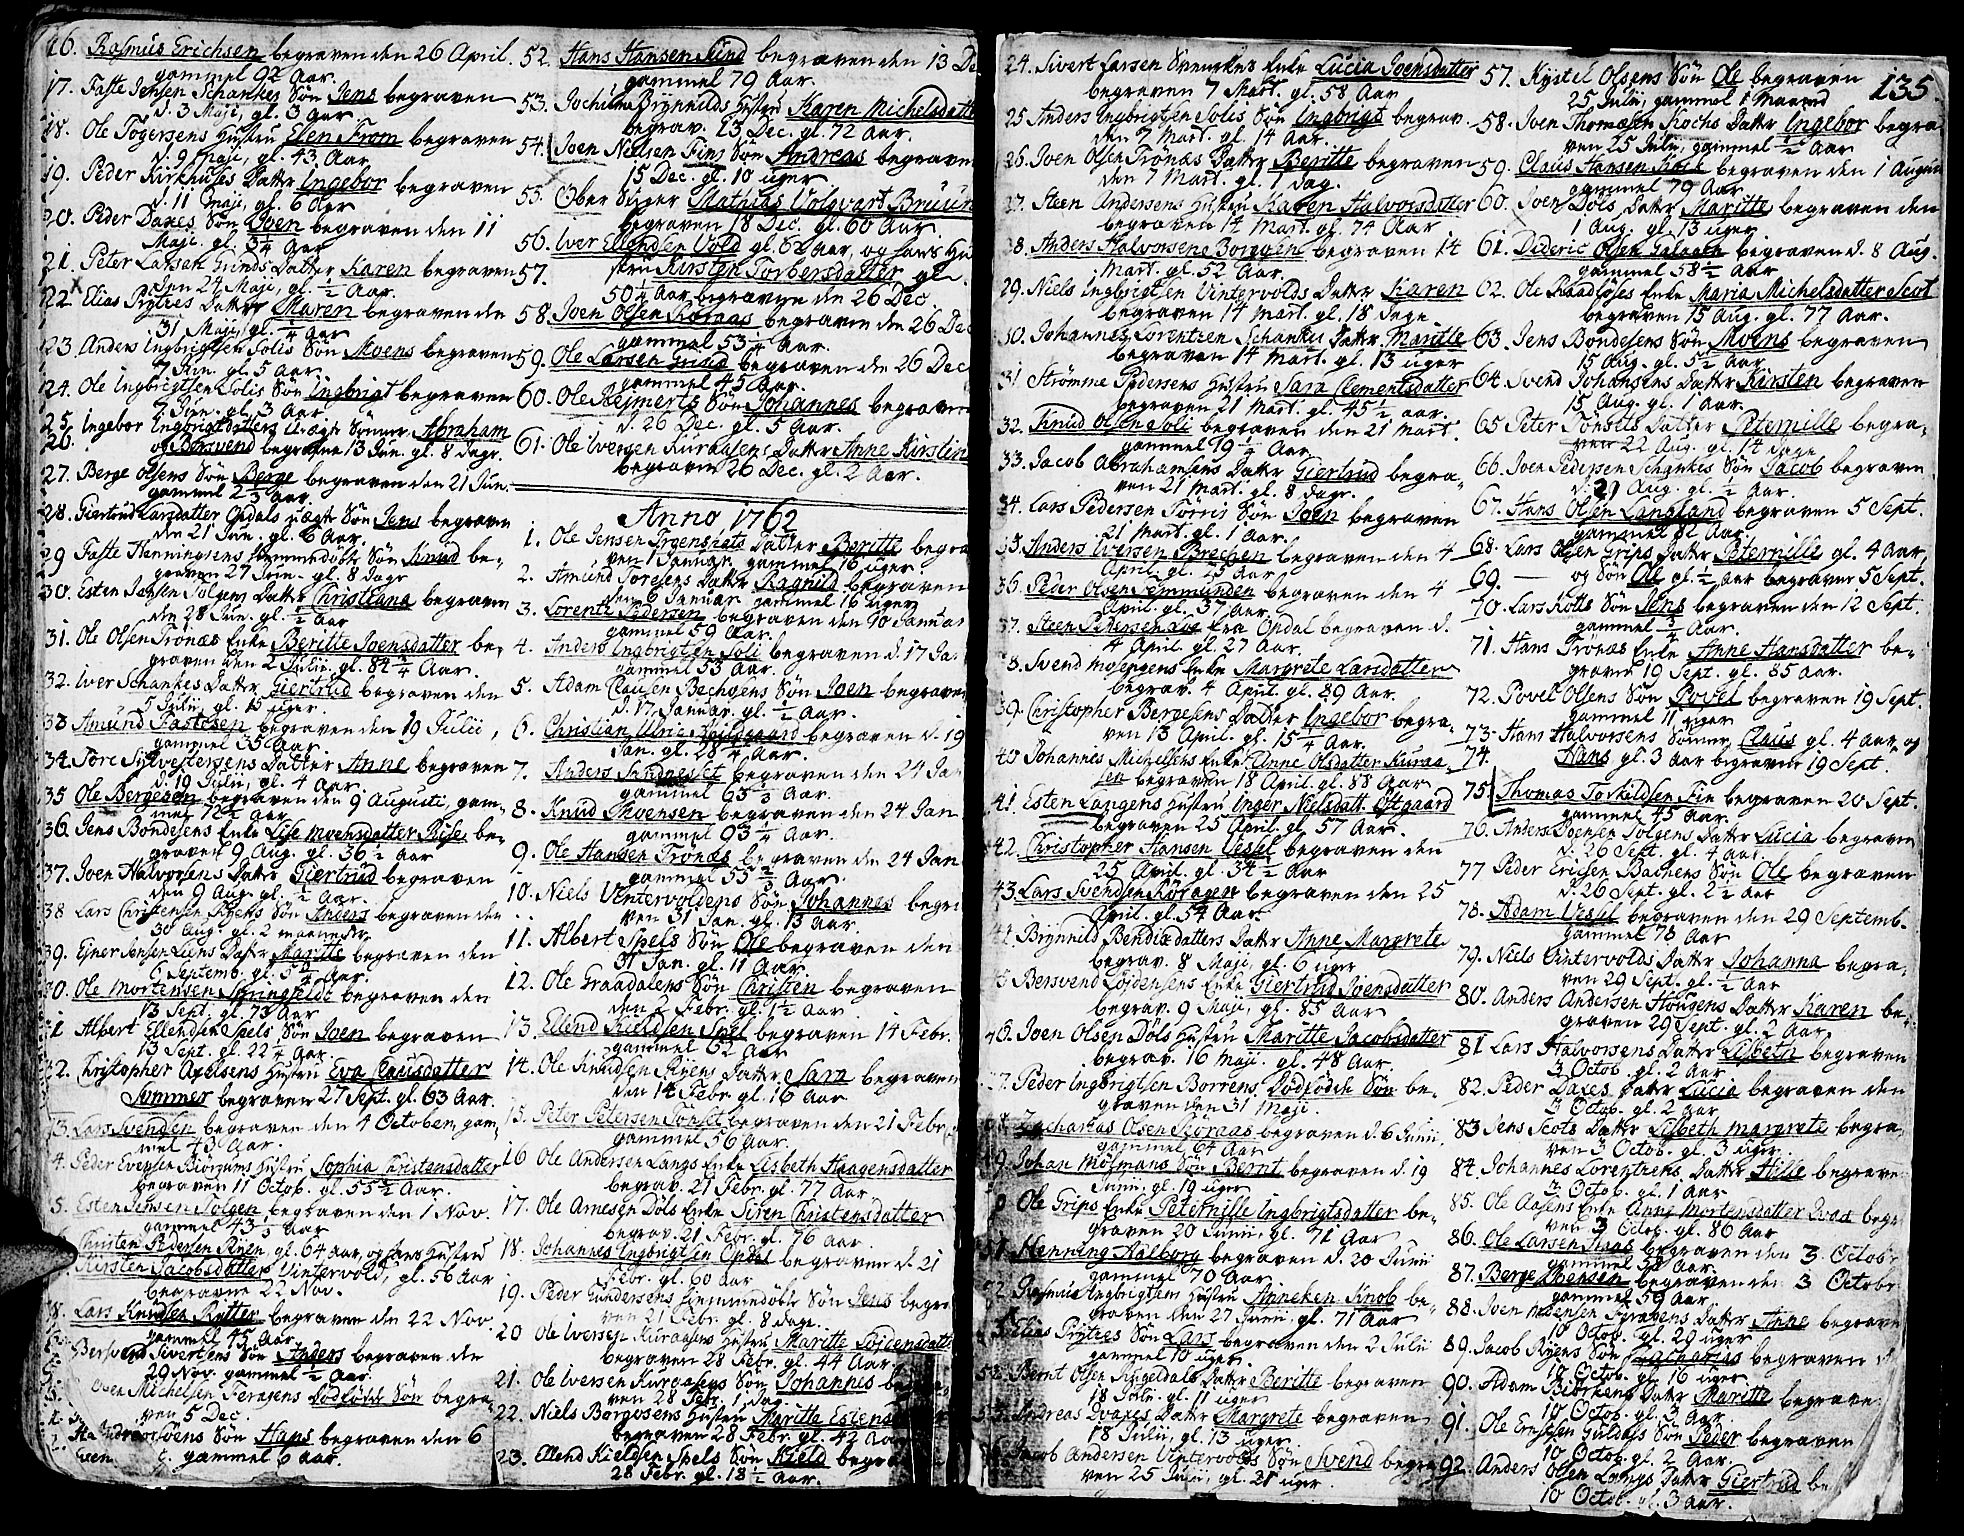 16. Rasmus Erichsen begraven den 26 April.
gammel 92 Aar.
17. Faste Jensen Schanches Søn Jens begraven
d. 3 Maji, gl. 3 Aar
18. Ole Togersens Hustru Elen From begraven
d. 9 Maji, gl. 43 Aar
19. Peder Kirkhuses Datter Ingebor begraven
d. 11 Maji, gl. 6 Aar
20. Peder Daxes Søn Joen begraven den 11
Maji. gl. 3 1/4 Aar
21. Peter Larsen Grinds Datter Karen begraven
den 24 Maji, gl. 1/2 Aar.
22. Elias Prytzes Datter Maren begraven den
31 Maji, gl. 1/4 Aar
23. Anders Ingbrigtsen Solis Søn Moens begraven
7 Jun. gl. 5 Aar.
24. Ole Ingbrigtsen Solis Søn Ingbrigt begraven
7 Jun. gl. 3 Aar.
25. Ingebor Ingbrigtsdatters uægte Sønner, Abraham
26. og Bersvend begravne 13 Jun. gl. 8 dage.
27. Berge Olsens Søn Berge begraven den 21 Jun.
gammel 2 3/4 Aar.
28. Giertrud Larsdatter Opdals uægte Søn Jens begraven
den 21 Jun. gl. 6 Aar.
29 Faste Henningsens hjemmedøbte Søn Knud be-
graven 27 Jun. gl. 8 dage
30. Esten Jensen Tolgens Datter Christiana begraven
den 28 Jun. gl. 1/2 Aar
31. Ole Olsen Trønæs Enke Beritte Joensdatter be-
graven den 2 Julii. gl. 84 3/4 Aar.
32. Iver Schankes Datter Giertrud begraven den
5 Julii, gl. 15 uger.
33 Amund Fastesen begraven den 19 Julii,
gammel 35 Aar.
34. Tore Sylvestersens Datter Anne begraven
d. 19 Julii, gl. 4 Aar.
35 Ole Bergesen begraven den 9 Augusti, gam-
mel 72 1/2 Aar.
36. Jens Bondesens Enke Lise Moensdatter Riise be-
graven 9 Aug. gl. 36 1/2 Aar
37. Joen Halvorsens Datter Giertrud begraven
den 9 Aug. gl. 1/2 Aar.
38 Lars Christensen Søn Anders begraven den
30 Aug. gl. 2 maaneder.
39. Ejner Jensen Lunds Datter Maritte begraven den
6 Septemb. gl. 5 Aar.
40. Ole Mortensen Springfeldt begraven den
13 Sept. gl. 73 Aar
41 Albert Ellendsen Spels Søn Joen begraven
13 Sept. gl. 22 1/4 Aar.
42. Christopher Axelsens Hustru Eva Clausdatter
Sommer begraven 27 Sept. gl. 63 Aar.
43. Lars Svendsen begraven den 4 October, gam-
mel 43 Aar.
4. Peder Evensen Hustru Sophia Christensdatter
begraven 11 Octob. gl. 55 1/2 Aar.
5. Esten Jensen Tolgen begraven den 1 Nov.
gammel 43 1/3 Aar
Christen Pedersen Rüen, gl. 64 Aar, og hans Hustru
Kirsten Jacobsdatter Vintervold, gl. 56 Aar
begravne 22 Nov.
48. Lars Knudsen Rytter begraven den 22 Nov.
gammel 45 Aar.
Bersvend Sivertsens Søn Anders begraven den
29 Nov. gammel 1/2 Aar.
Michelsen Feragens Dødfødde Søn begra-
ven 5 Dec.
Søn Hans begraven den 6
gammel 6 Aar.
52. Hans Hansen Sund begraven den 13 De
gammel 79 Aar.
53. Jochum Brynnilds Hustru Karen Michelsdatt
begrav. 13 Dec. gl. 72 Aar.
54. Joen Nielsen Fins Søn Andreas begraven
15 Dec. gl. 10 uger
55. Ober Stiger Mathias Volqvart Bruun
begraven 18 Dec. gl. 60 Aar.
56. Iver Ellendsen Vold gl. 62 Aar, og hans Hu
57. stru Kirsten Torbersdatter gl.
50 1/4 Aar begravne den 26 Dec.
58. Joen Olsen Koraas begraven den 26 Dec
gammel 53 1/4 Aar.
59. Ole Larsen Grind begraven den 26 Dec
gammel 45 Aar.
60. Ole Rejmerts Søn Johannes begraven
d. 26 Dec. gl. 5 Aar.
61. Ole Iversen Kuraasens Datter Anne Kirstin
begraven 26 Dec. gl. 2 Aar.
Anno 1762
1. Ole Jensen Datter Beritte begra
ven 1 Januar. gammel 16 uger.
2. Amund Toresens Datter Ragnild begraven
den 6 Januar gammel 16 uger
3. Lorentz Pedersen begraven den 10 Januar
gammel 59 Aar.
4. Anders Ingbrigtsen Soli begraven d. 17 Ja
gammel 53 Aar.
5. Adam Clausen Bachgens Søn Joen begraven
d. 17 Januar. gl. 1/2 Aar.
6. Christian Ulric begraven d. 19
Jan. gl. 28 1/4 Aar.
7. Anders Sundneslet begraven den 24 Jan
gammel 65 1/3 Aar.
8. Knud Moensen begraven den 24 Jan
gammel 93 1/4 Aar.
9. Ole Hansen Trønæs begraven den 24 Jan
gammel 55 2/3 Aar.
10. Niels Vintervoldens Søn Johannes begra
ven 31 Jan. gl. 13 Aar.
11. Albert Spels Søn Ole begraven den
31 Jan. gl. 11 Aar.
12. Ole Graadalens Søn Christen begraven
den 2 Febr. gl. 1 1/2 Aar
13. Ellend Kieldsen Spel begraven 14 Febr.
gammel 62 Aar
14. Ole Knudsen Ryens Datter Sara begraven
den 14 Febr. gl. 16 Aar
15. Peter Petersen Tønset begraven den 21 Febr.
gammel 56 Aar.
16 Ole Andersen Langs Enke Lisbeth Haagensdatter
begrav. 21 Febr. gl. 77 Aar
17. Ole Arnesen Døls Enke Siren Christensdatter
begrav. 21 Febr. gl. 76 Aar
18. Johannes Ingbrigtsen Opdal begraven d. 21
Febr. gl. 60 Aar
19. Peder Gundersens hjemmedøbte Søn Jens begra
ven 21 Febr. gl. 8 dage.
20 Ole Iversen Kuraasens Hustru Maritte Lojdensdatt
begraven 28 Febr. gl. 44 Aar.
21. Ole Iversen Kuraasens Søn Johannes be
ven 28 Febr. 1 dag.
22. Niels Borgosens Hustru Maritte Estens
begraven 28 Febr. gl. 42 Aar
23. Ellend Kieldsen Spels Søn Kield begra
28 Febr. gl. 18 1/2 Aar.
135.
24. Sivert Larsen Svenskes Enke Lucia Joensdatter
begraven 7 Mart. gl. 58 Aar
25 Anders Ingbrigtsen Solis Søn Ingbrigt begrav.
den 7 Mart. gl. 14 Aar.
26. Joen Olsen Trønæs Datter Beritte begraven
den 7 Mart. gl. 1 dag.
27. Steen Andersens Hustru Karen Halvorsdatter
begraven 14 Mart. gl. 74 Aar
28. Anders Halvorsens Borgen begraven 14
Mart. gl. 52 Aar.
29. Niels Ingbrigtsen Vintervolds Datter Karen
begraven 14 Mart. gl. 18 dage
30. Johannes Lorentzen Schankes Datter Maritte
begraven 14 Mart. gl. 13 uger
31 Strømme Pedersens Hustru Sara Clementsdatter
begraven 21 Mart. gl. 45 1/2 aar.
32. Knud Olsen Soli begraven den 21 Mart.
gammel 19 1/4 Aar.
33. Jacob Abrahamsens Datter Giertrud begra-
ven 21 Mart. gl. 8 dage.
34. Lars Pedersen Torris Søn Joen begraven
21 Mart. gl. 1 Aar.
35. Anders Iversen Brechen begraven den 4
April. gl. Aar
36. Peder Olsen Femmunden begraven den 4
April. gl. 37 Aar.
37. Steen Pedersen Loe fra Opdal begraven d.
4 April. gl. 27 Aar.
38. Svend Mosengens Enke Margrete Larsdatter
begrav. 4 April. gl. 89 Aar.
39. Christopher Bergesens Datter Ingebor begra-
ven 13 April. gl. 15 1/4 Aar.
40 Johannes Michelsens Enke Anne Olsdatter Kuraa
sen begraven 18 April. gl. 88 Aar
41. Esten Langens Hustru Inger Nielsdatt. Østgaard
begraven 25 April. gl. 57 Aar.
42. Christopher Hansen Vessel begraven den
25 April. gl. 34 1/2 Aar
43. Lars Svendsen Køragen begraven den 25
April. gl. 54 Aar.
44 Brynnild Bendixdatters Datter Anne Margrete
begrav. 8 Maji, gl. 6 uger
45 Bersvend Lojdensens Enke Giertrud Joensdatter
begrav. 9 Maji, gl. 85 Aar
46. Joen Olsen Døls Hustru Maritte Jacobsdatter
begrav. 16 Maji. gl. 48 Aar.
47. Peder Ingbrigtsen Borrens Dødfødde Søn be-
graven den 31 Maji.
48 Zacharias Olsen Koraas begraven d. 6 Junii
gammel 64 Aar
49. Johan Møsmans Søn Bernt begraven d. 19
Junii, gl. 19 uger
50 Ole Grips Enke Peternille Ingbrigtsdatter be-
graven 20 Junii, gl. 71 Aar
51 Henning Aalborg begraven d. 20 Junii
gammel 70 Aar
52. Rasmus Ingbrigtsens Hustru Anneken Knob be-
graven den 27 Junii, gl. 71 Aar
Elias Prytzes Søn Lars begraven den 2 Julii
gammel 10 uger.
Bernt Olsen Engeldals Datter Beritte begraven
18 Julii. gl. 11 uger
Andreas Datter Margrete begraven
18 Julii, gl. 13 uger
Jacob Andersen Vintervolds Søn Svend begra
ven 25 Julii, gl. 21 uger.
57. Kystel Olsens Søn Ole begraven
25 Julii, gammel 1 Maaned
58. Joen Thomæsen Kochs Datter Ingebor begra
ven 25 Julii, gammel 1/2 Aar
59. Claus Hansen Koch begraven den 1 Augusti
gammel 79 Aar.
60. Joen Døls Datter Maritte begraven den
1 Aug. gl. 13 uger
61. Dideric Olsen Galaaen begraven d. 8 Aug.
gammel 58 1/2 Aar
62. Ole Raadløses Enke Maria Michelsdatter Scot
begraven 15 Aug. gl. 77 Aar.
63. Jens Bondesens Søn Moens begraven
15 Aug. gl. 5 1/2 Aar
64. Svend Johansens Datter Kirsten begraven
15 Aug. gl. 1 Aar.
65 Peter Tønsets Datter Peternille begra-
ven 22 Aug. gl. 14 dage
66. Joen Pedersen Schankes Søn Jacob begraven
d. 21 Aug. gl. 1/2 Aar.
67. Hans Olsen Langland begraven 5 Sept.
gammel 81 Aar.
68. Lars Olsen Grips Datter Peternille gl. 4 Aar,
69. — og Søn Ole gl. 1/2 Aar begraver 5 Sept.
70. Lars Kotts Søn Jens begraven den 12 Sept.
gammel 3/4 Aar.
71. Hans Trønæs Enke Anne Hansdatter be-
graven 19 Sept. gl. 85 Aar.
72. Povel Olsens Søn Povel begraven 19 Sept.
gammel 11 uger
73. Hans Halvorsens Sønner, Claus gl. 4 Aar, og
74. Hans gl. 3 aar begraven 19 Sept.
75 Thomas Torkildsen Fin begraven 20 Sept.
gammel 45 Aar.
76. Anders Joensen Tolgens Datter Lucia begraven
d. 26 Sept. gl. 4 Aar.
77 Peder Ericsen Bachens Søn Ole begraven
d. 26 Sept. gl. 2 1/2 Aar
78. Adam Vessel begraven den 29 Septemb.
gammel 78 Aar
79. Niels Vintervolds Datter Johanna begra-
ven 29 Sept. gl. 1/2 Aar
80. Anders Andersen Hougens Datter Karen be-
graven 29 Sept. gl. 2 Aar
81 Lars Halvorsens Datter Lisbeth begraven
3 Octob. gl. 2 Aar
82. Peder Daxes Datter Lucia begraven den
3 Octob. gl. 2 Aar
83 Jens Scots Datter Lisbeth Margrete begra-
ven 3 Octob. gl. 3 uger.
84. Johannes Lorentzens Datter Hille begrave
3 Octob. gl. 1 Aar
85. Ole Aasens Enke Anne Mortensdatter begra
ven 3 Octob. gl. 86 Aar
86. Ole Larsen Haas begraven den 3 Octobr
gammel 58 Aar.
87. Berge Moensen begraven den 3 Octobr
gammel 59 Aar.
88. Joen Moensen Feragens Datter Anne begrave
10 Octob. gl. 29 uger
89. Jacob Ryens Søn Zacharias begraven d
10 Octob. gl. 16 uger
90. Adam Biørkens Datter Maritte begrave
10 Octob. gl. 3 Aar.
91. Ole Ernstsen Guldals Søn Peder begraven
10 Octob. gl. 2 Aar.
92. Anders Olsen Langs Datter Giertrud be
10 Octob. gl. 3 Aar.